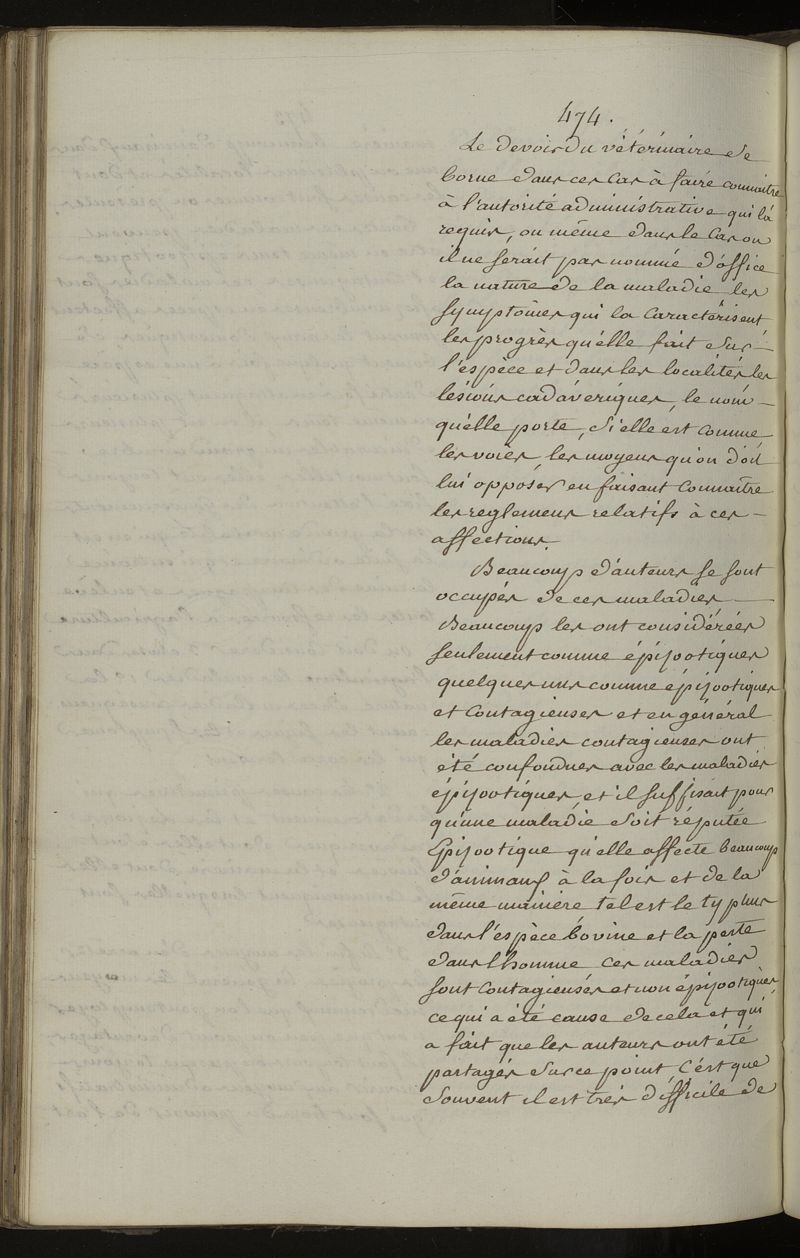 474.
Le devoir du vétérinaire se
borne dans ces cas à faire connaitre
à l'autorité administrative qui la
requis, ou même dans le cas ou
il ne serait pas nommé d'office
la nature de la maladie les
symptômes qui la caractérisent
les progrès qu'elle fait sur —
l'espèce et dans les localités les
lésions cadavériques, le nom —
qu'elle porte, si elle est comme
les voies, les moyens qu'on doit
lui opposer en faisant connaître
les reglemens relatifs à ces —
affections.
Beaucoup d'auteurs se sont
occupés de ces maladies —
Beaucoup les ont considérées
seulement comme épizootiques
quelques uns comme épizootiques
et contagieuses et en général
les maladies contagieuses ont
été confondues avec les maladies
épizootiques, et il suffisait pour
qu'une maladie soit réputée
Epizootique qu'elle affecte beaucoup
d'animaux à la fois et de la
même manière tel est le typhus
dans l'espèce bovine et la peste
dans l'homme ces maladies
sont contagieuses et non épizootiques
ce qui a été cause de cela et qui
a fait que les auteurs ont été
partagés sur ce point c'est que
souvent il est très difficile de